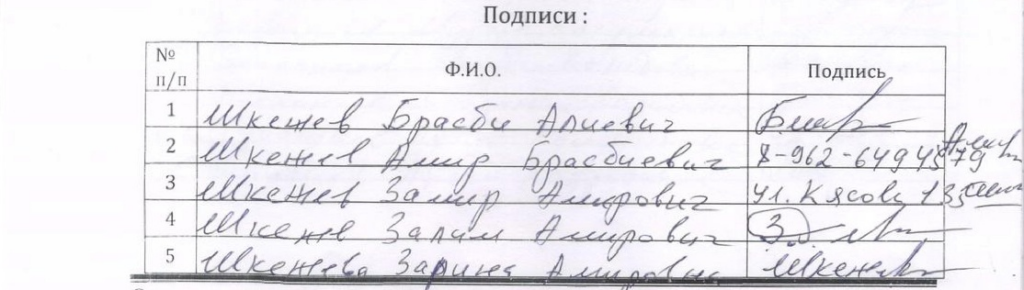 Подписи :
№ п/п Ф.И.О. Подпись
1 Шкежев Брасби Алиевич
2 Шкежев Амир Брасбиевич 8-962-6494579
3 Шкежев Замир Амирович ул. Кясова 13
4 Шкежев Залим Амирович
5 Шкежева Зарина Амировна Шкежева